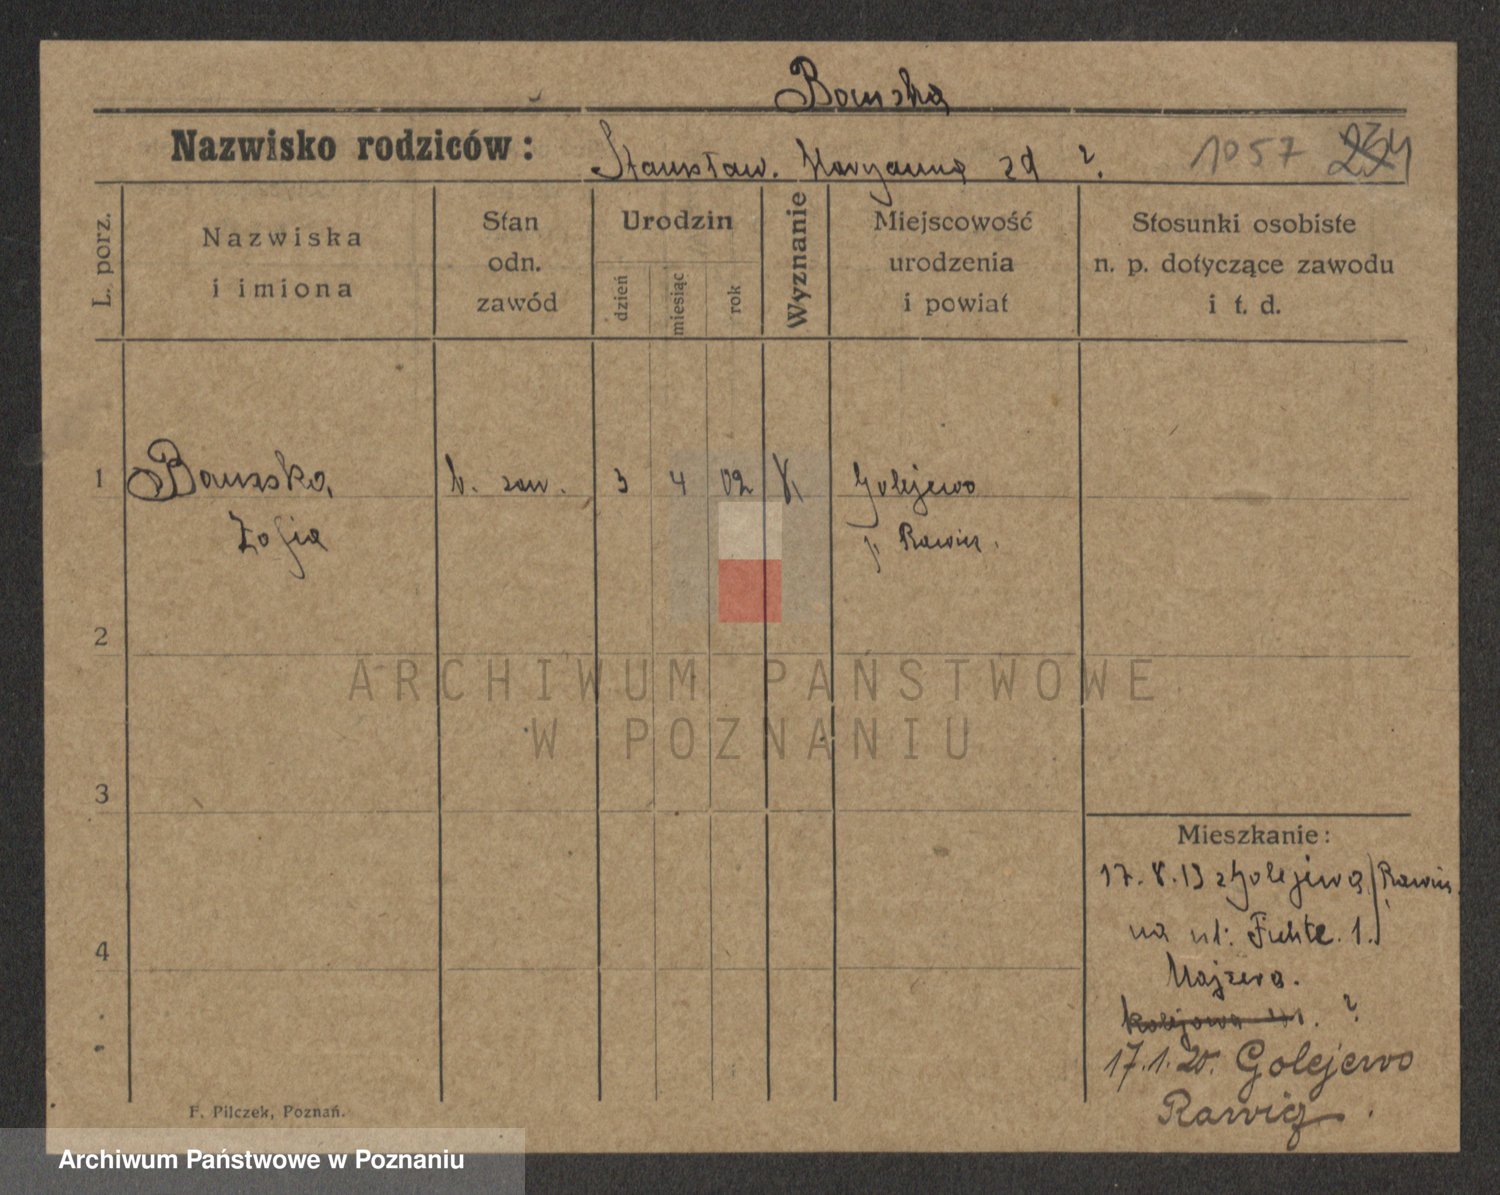 Nazwisko rodziców:
Stanisław. Maryanna zd ?.
1057
L. porz.
Nazwiska
i imiona
Stan
odn.
zawód
Urodzin
dzień
miesiąc
rok
Wyznanie
Miejscowość
urodzenia
i powiat
Stosunki osobiste
n. p. dotyczące zawodu
i t. d.
1
b. zaw. 3 4 02 k
Golejewo
Zofia
p. Rawicz.
2
ARCHIWUM PAŃSTWOWE
W POZNANIU
3
Mieszkanie:
17. 8. 13 z Golejewa Rawicz
na ul: Fichte. 1.
4
17.1.20. Golejewo
Rawicz
F. Pilczek, Poznań.
Archiwum Państwowe w Poznaniu